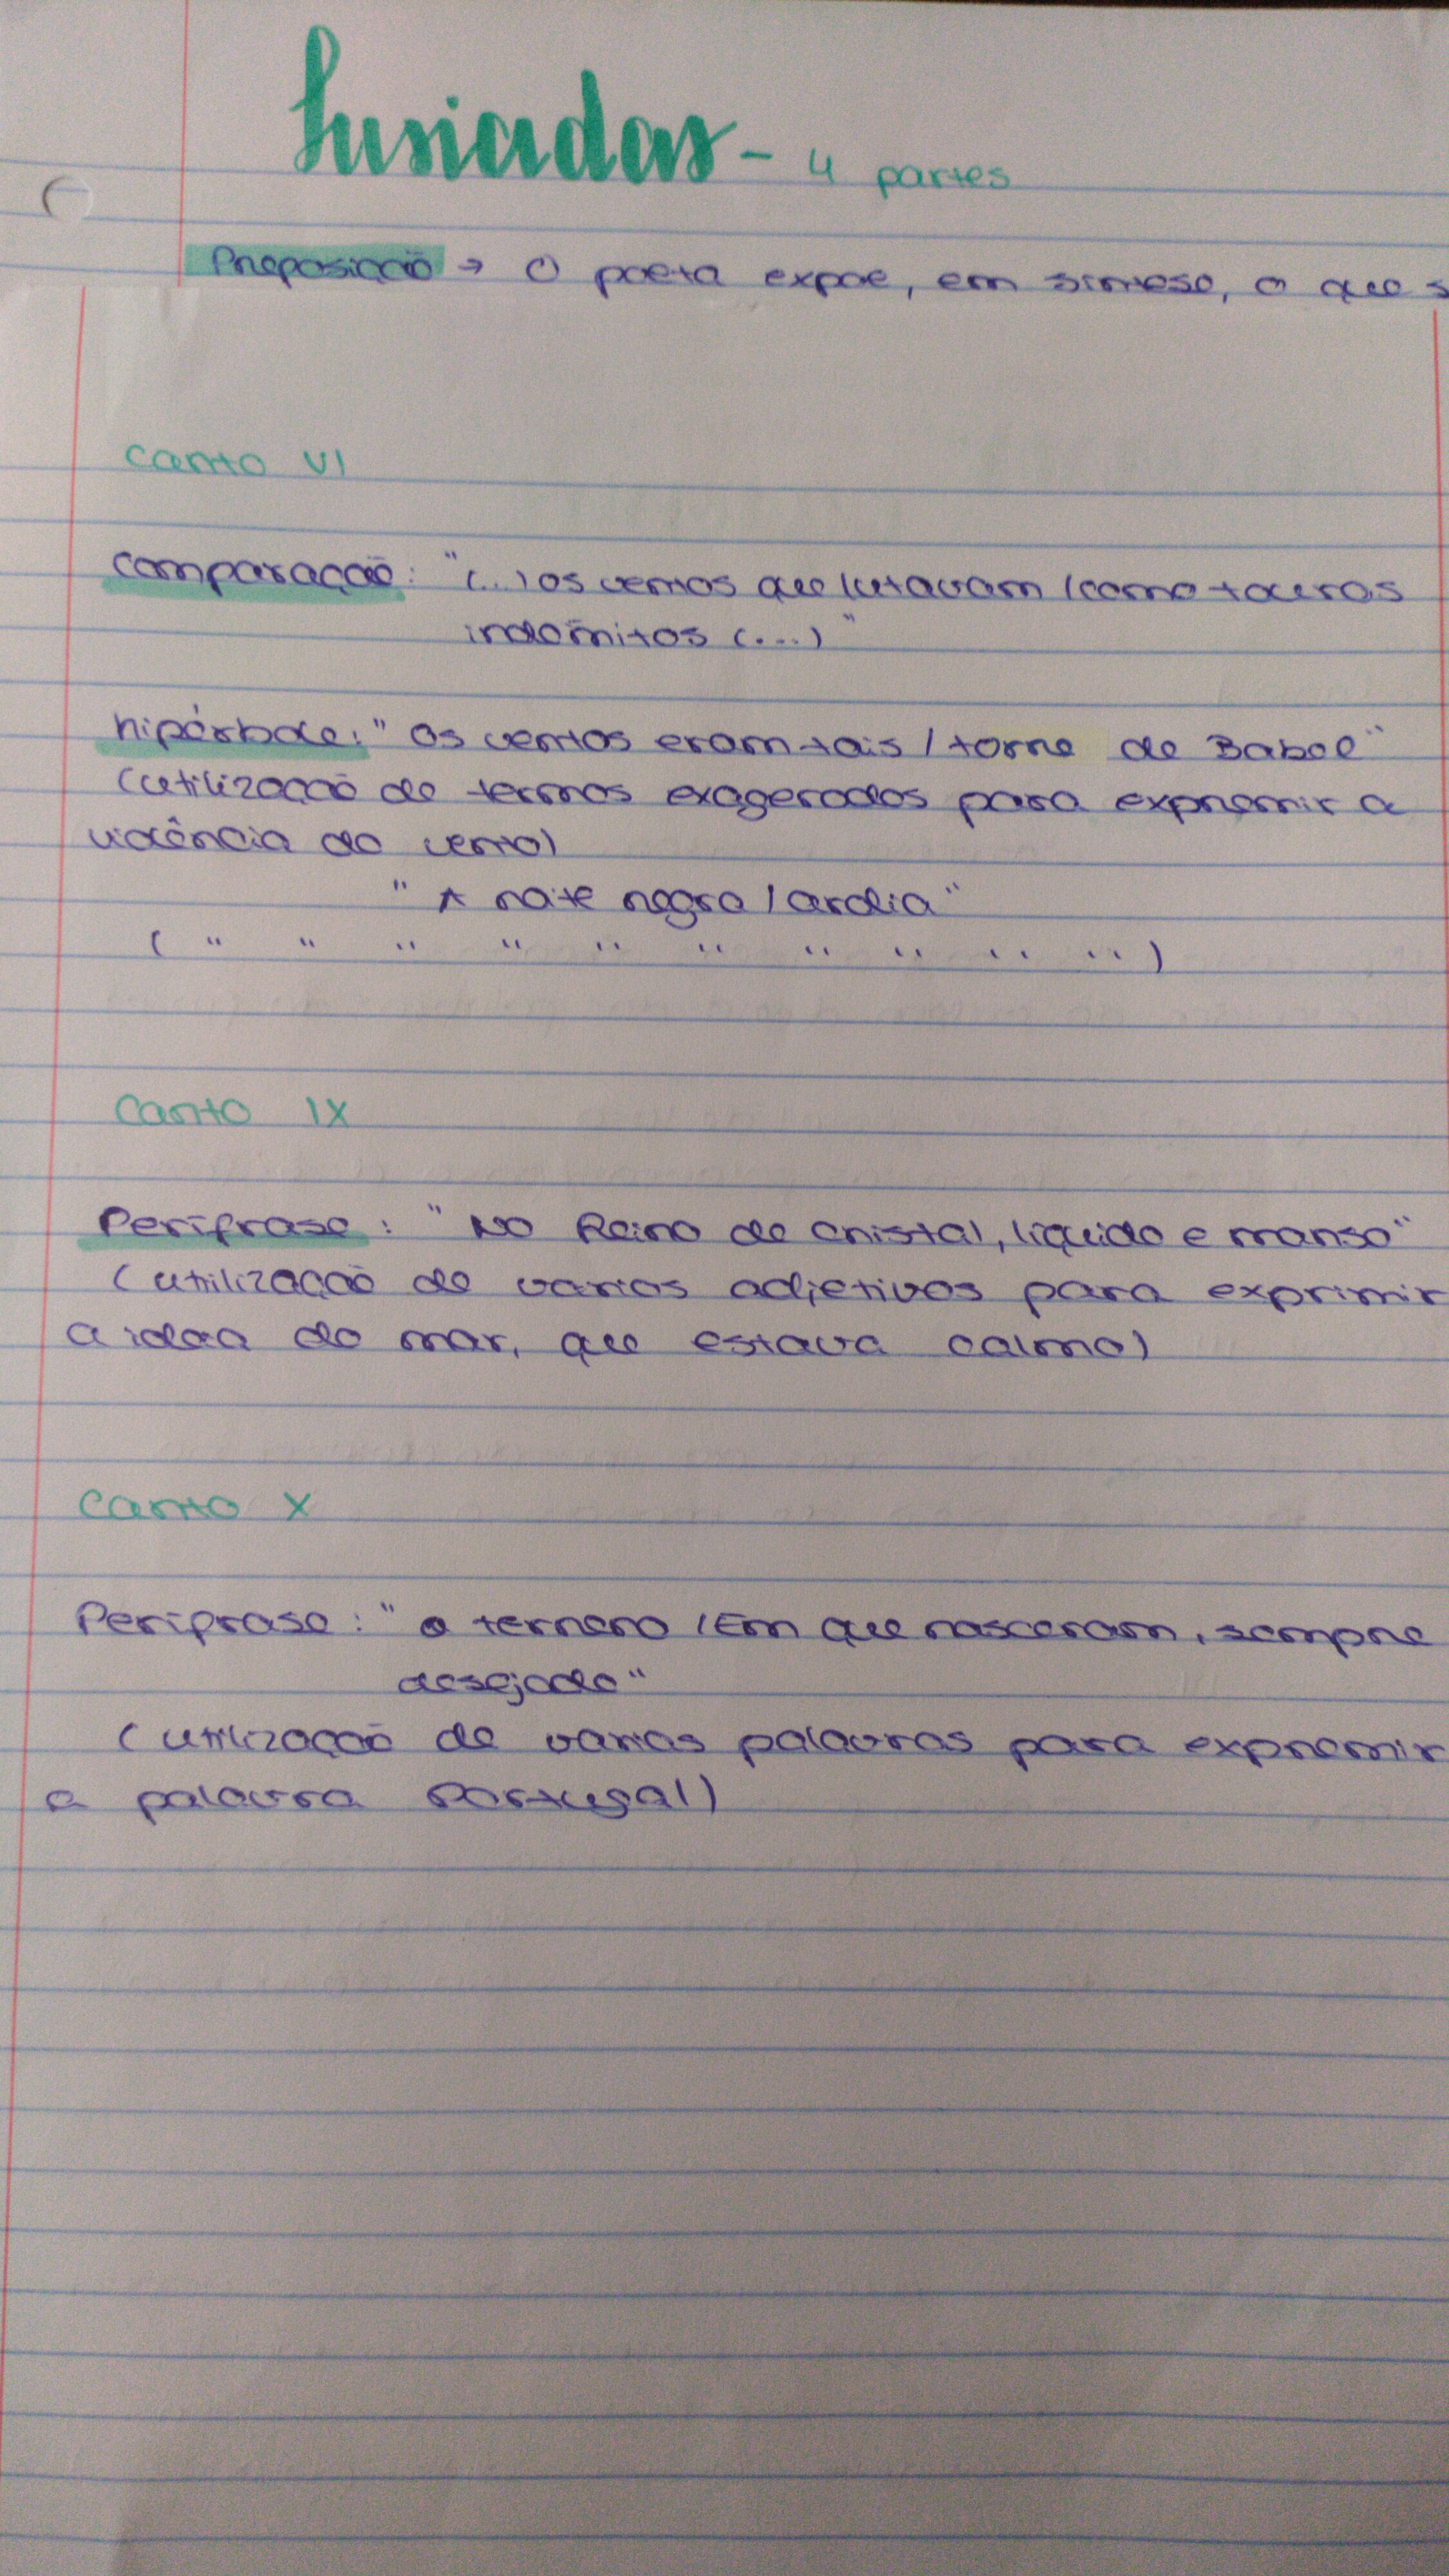 Lusiadas - 4 partes
Preposição → O poeta expoe, em sintese, o que s
canto VI
comparação: "(...) os ventos que lutavam /como touros
indómitos (...)"
hipérbole: "Os ventos eram tais / torre de Babel"
(utilização de termos exagerados para expremir a
violência do vento)
"A noite negra / ardia"
( " " " " " " " " " " )
Canto IX
Perífrase: "No Reino de cristal, liquido e manso"
(utilização de varios adjetivos para exprimir
a idea do mar, que estava calmo)
Canto X
Perifrase: "o terreno /Em que nasceram, sempre
desejado"
(utilização de varias palavras para expremir
a palavra Portugal)